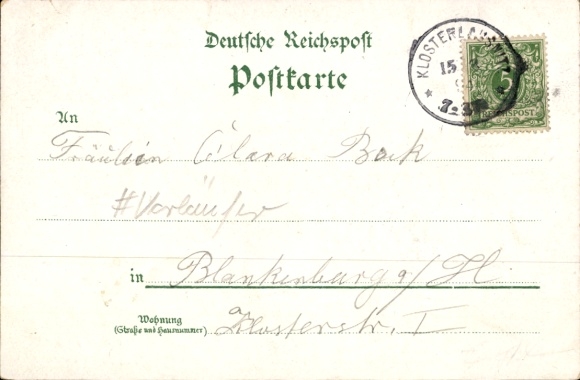 Deutsche Reichspost
Postkarte
KLOSTERLAUSNITZ
15
7-8N
5
REICHSPOST
An
Fräulein Clara Bock
#Vorläufer
in Blankenburg a/H
Wohnung
(Straße und Hausnummer)
Klosterstr. I